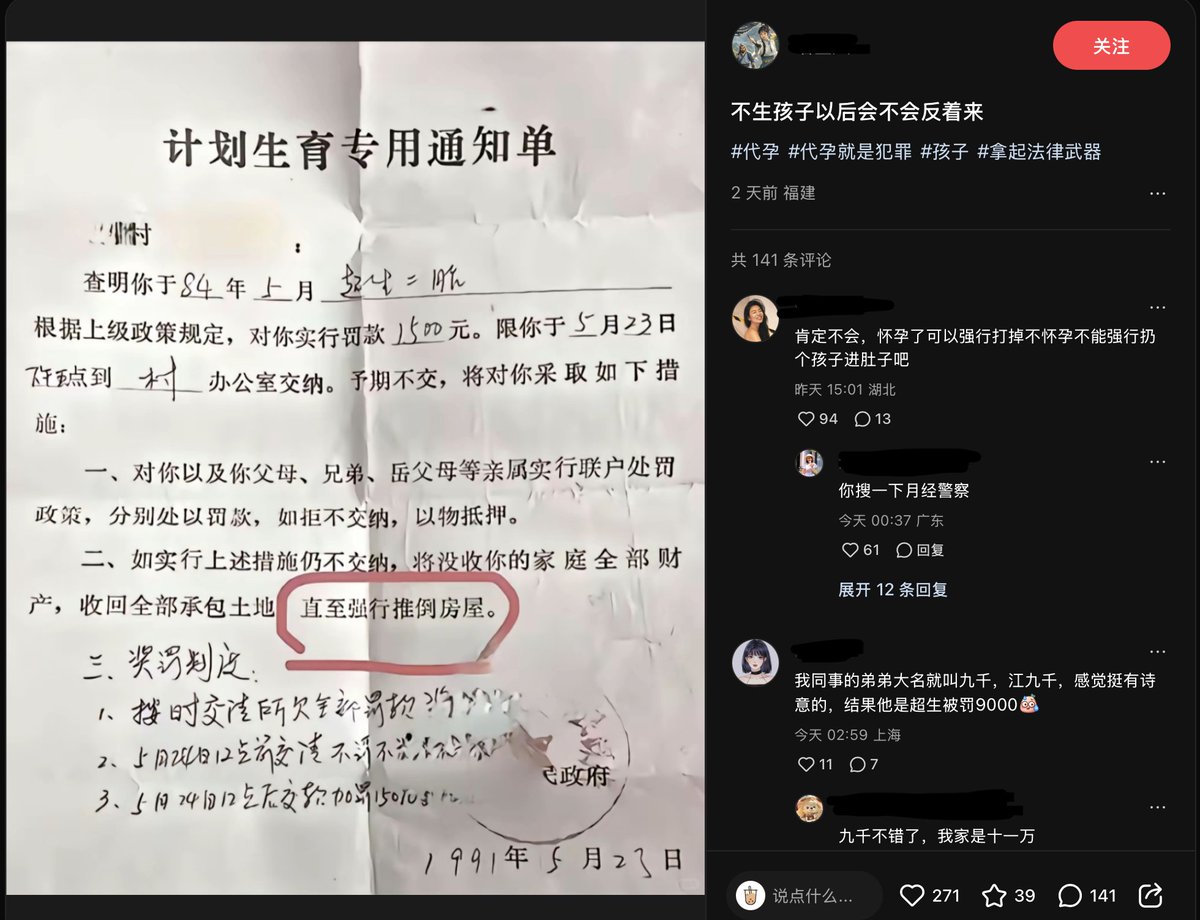 计划生育专用通知单
村
:
查明你于84年5月超生二胎
根据上级政策规定，对你实行罚款1500元。限你于5月23日
点到 村 办公室交纳。予期不交，将对你采取如下措
施：
一、对你以及你父母、兄弟、岳父母等亲属实行联户处罚
政策，分别处以罚款，如拒不交纳，以物抵押。
二、如实行上述措施仍不交纳，将没收你的家庭全部财
产，收回全部承包土地 直至强行推倒房屋。
三、奖罚制度：
1、按时交清所欠全部罚款
2、5月24日12点前交清不罚不
3、5月24日12点后交款加罚150
民政府
1991年5月23日
关注
不生孩子以后会不会反着来
#代孕 #代孕就是犯罪 #孩子 #拿起法律武器
2 天前 福建
共 141 条评论
肯定不会，怀孕了可以强行打掉不怀孕不能强行扔
个孩子进肚子吧
昨天 15:01 湖北
94 13
你搜一下月经警察
今天 00:37 广东
61 回复
展开 12 条回复
我同事的弟弟大名就叫九千，江九千，感觉挺有诗
意的，结果他是超生被罚9000
今天 02:59 上海
11 7
九千不错了，我家是十一万
说点什么... 271 39 141